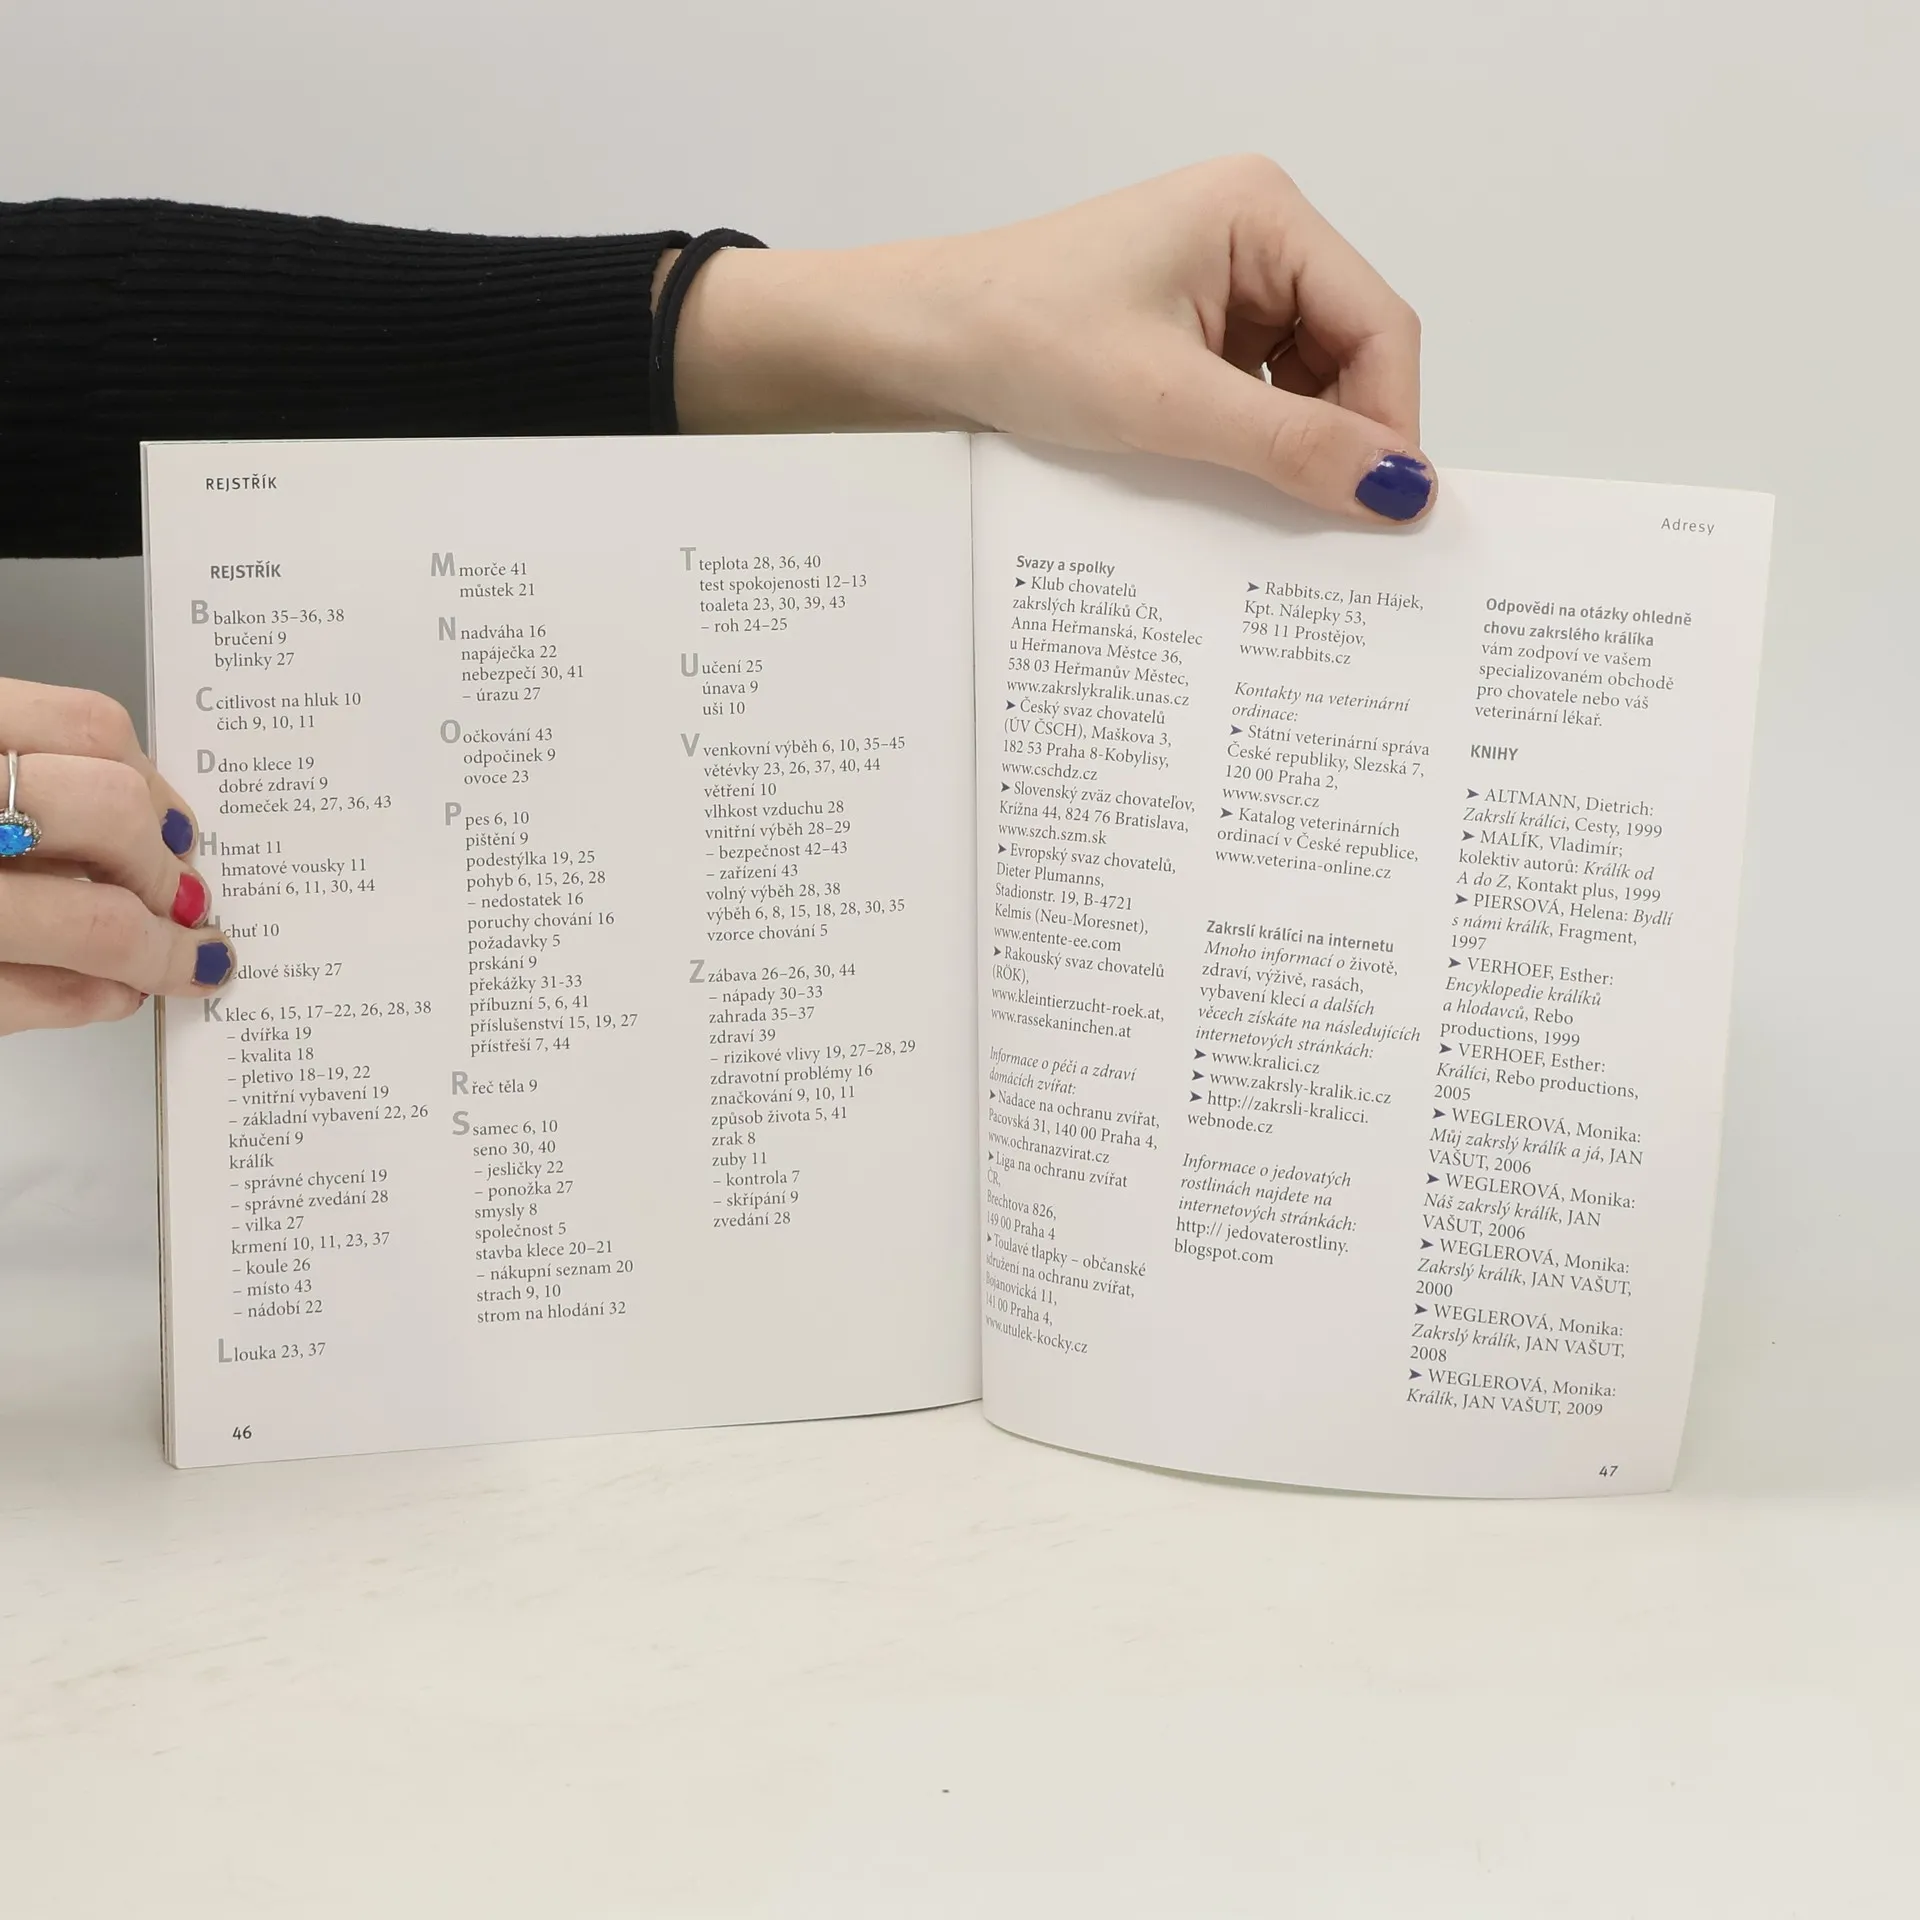 REJSTŘÍK
REJSTŘÍK
B balkon 35–36, 38
bručení 9
bylinky 27
C citlivost na hluk 10
čich 9, 10, 11
D dno klece 19
dobré zdraví 9
domeček 24, 27, 36, 43
H hmat 11
hmatové vousky 11
hrabání 6, 11, 30, 44
chuť 10
šišky 27
K klec 6, 15, 17–22, 26, 28, 38
– dvířka 19
– kvalita 18
– pletivo 18–19, 22
– vnitřní vybavení 19
– základní vybavení 22, 26
kňučení 9
králík
– správné chycení 19
– správné zvedání 28
– vilka 27
krmení 10, 11, 23, 37
– koule 26
– místo 43
– nádobí 22
L louka 23, 37
46
M morče 41
můstek 21
N nadváha 16
napáječka 22
nebezpečí 30, 41
– úrazu 27
O očkování 43
odpočinek 9
ovoce 23
P pes 6, 10
pištění 9
podestýlka 19, 25
pohyb 6, 15, 26, 28
– nedostatek 16
poruchy chování 16
požadavky 5
prskání 9
překážky 31-33
příbuzní 5, 6, 41
příslušenství 15, 19, 27
přístřeší 7, 44
R řeč těla 9
S samec 6, 10
seno 30, 40
– jesličky 22
– ponožka 27
smysly 8
společnost 5
stavba klece 20–21
– nákupní seznam 20
strach 9, 10
strom na hlodání 32
T teplota 28, 36, 40
test spokojenosti 12–13
toaleta 23, 30, 39, 43
– roh 24–25
U učení 25
únava 9
uši 10
V venkovní výběh 6, 10, 35–45
větévky 23, 26, 37, 40, 44
větření 10
vlhkost vzduchu 28
vnitřní výběh 28–29
– bezpečnost 42–43
– zařízení 43
volný výběh 28, 38
výběh 6, 8, 15, 18, 28, 30, 35
vzorce chování 5
Z zábava 26–26, 30, 44
– nápady 30–33
zahrada 35–37
zdraví 39
– rizikové vlivy 19, 27–28, 29
zdravotní problémy 16
značkování 9, 10, 11
způsob života 5, 41
zrak 8
zuby 11
– kontrola 7
– skřípání 9
zvedání 28
Adresy
Svazy a spolky
➤ Klub chovatelů
zakrslých králíků ČR,
Anna Heřmanská, Kostelec
u Heřmanova Městce 36,
538 03 Heřmanův Městec,
www.zakrslykralik.unas.cz
➤ Český svaz chovatelů
(ÚV ČSCH), Maškova 3,
182 53 Praha 8-Kobylisy,
www.cschdz.cz
➤ Slovenský zväz chovateľov,
Krížna 44, 824 76 Bratislava,
www.szch.szm.sk
➤ Evropský svaz chovatelů,
Dieter Plumanns,
Stadionstr. 19, B-4721
Kelmis (Neu-Moresnet),
www.entente-ee.com
➤ Rakouský svaz chovatelů
(RÖK),
www.kleintierzucht-roek.at,
www.rassekaninchen.at
Informace o péči a zdraví
domácích zvířat:
➤ Nadace na ochranu zvířat,
Pacovská 31, 140 00 Praha 4,
www.ochranazvirat.cz
➤ Liga na ochranu zvířat
ČR,
Brechtova 826,
149 00 Praha 4
➤ Toulavé tlapky – občanské
sdružení na ochranu zvířat,
Bojanovická 11,
141 00 Praha 4,
www.utulek-kocky.cz
➤ Rabbits.cz, Jan Hájek,
Kpt. Nálepky 53,
798 11 Prostějov,
www.rabbits.cz
Kontakty na veterinární
ordinace:
➤ Státní veterinární správa
České republiky, Slezská 7,
120 00 Praha 2,
www.svscr.cz
➤ Katalog veterinárních
ordinací v České republice,
www.veterina-online.cz
Zakrslí králíci na internetu
Mnoho informací o životě,
zdraví, výživě, rasách,
vybavení klecí a dalších
věcech získáte na následujících
internetových stránkách:
➤ www.kralici.cz
➤ www.zakrsly-kralik.ic.cz
➤ http://zakrsli-kralicci.
webnode.cz
Informace o jedovatých
rostlinách najdete na
internetových stránkách:
http:// jedovaterostliny.
blogspot.com
Odpovědi na otázky ohledně
chovu zakrslého králíka
vám zodpoví ve vašem
specializovaném obchodě
pro chovatele nebo váš
veterinární lékař.
KNIHY
➤ ALTMANN, Dietrich:
Zakrslí králíci, Cesty, 1999
➤ MALÍK, Vladimír;
kolektiv autorů: Králík od
A do Z, Kontakt plus, 1999
➤ PIERSOVÁ, Helena: Bydlí
s námi králík, Fragment,
1997
➤ VERHOEF, Esther:
Encyklopedie králíků
a hlodavců, Rebo
productions, 1999
➤ VERHOEF, Esther:
Králíci, Rebo productions,
2005
➤ WEGLEROVÁ, Monika:
Můj zakrslý králík a já, JAN
VAŠUT, 2006
➤ WEGLEROVÁ, Monika:
Náš zakrslý králík, JAN
VAŠUT, 2006
➤ WEGLEROVÁ, Monika:
Zakrslý králík, JAN VAŠUT,
2000
➤ WEGLEROVÁ, Monika:
Zakrslý králík, JAN VAŠUT,
2008
➤ WEGLEROVÁ, Monika:
Králík, JAN VAŠUT, 2009
47